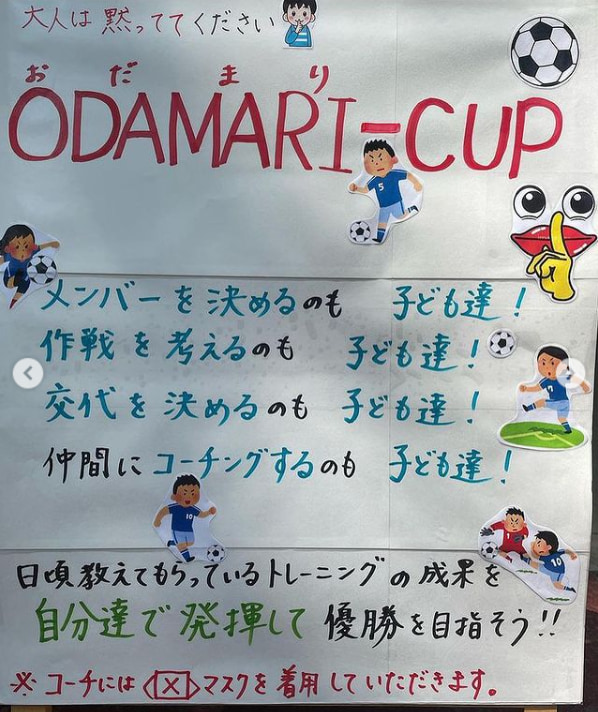 大人は黙っててください
おだまり
ODAMARI-CUP
メンバーを決めるのも 子ども達!
作戦を考えるのも 子ども達!
交代を決めるのも 子ども達!
仲間にコーチングするのも 子ども達!
日頃教えてもらっているトレーニングの成果を
自分達で発揮して優勝を目指そう!!
※コーチには<☒>マスクを着用していただきます。